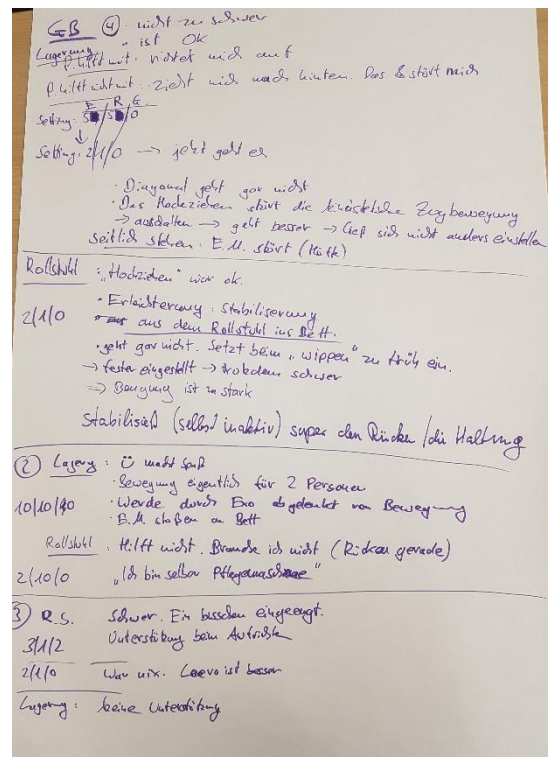 GB ④ nicht zu schwer
" ist OK
Lagerung
P. hilft mit: richtet mich auf
P. hilft nicht mit: zieht mich nach hinten. Das stört mich
E R G
Setting: 5 / 5 / 0
↓
Setting: 2/1/0 → jetzt geht es
· Diagonal geht gar nicht
· Das Hochziehen stört die kinästhetische Zugbewegung
→ ausschalten → geht besser → ließ sich nicht anders einstellen
Seitlich stehen. E.M. stört (Hüfte)
Rollstuhl : „Hochziehen" war ok.
2/1/0 · Erleichterung: Stabilisierung
aus dem Rollstuhl ins Bett.
· geht gar nicht. Setzt beim „wippen" zu früh ein.
→ fester eingestellt → trotzdem schwer
=> Beugung ist zu stark
Stabilisiert (selbst inaktiv) super den Rücken / die Haltung
② Lagerg : ü macht Spaß
· Bewegung eigentlich für 2 Personen
10/10/10 · Werde durch Exo abgelenkt von Bewegung
· E.M. stoßen an Bett
Rollstuhl . Hilft nicht. Brauche ich nicht (Rücken gerade)
2/10/0 „Ich bin selber Pflegemaschine"
③ R.S. Schwer. Ein bisschen eingeengt.
3/1/2 Unterstützung beim Aufrichten
2/1/0 War nix. Laevo ist besser
Lagerung : keine Unterstützung